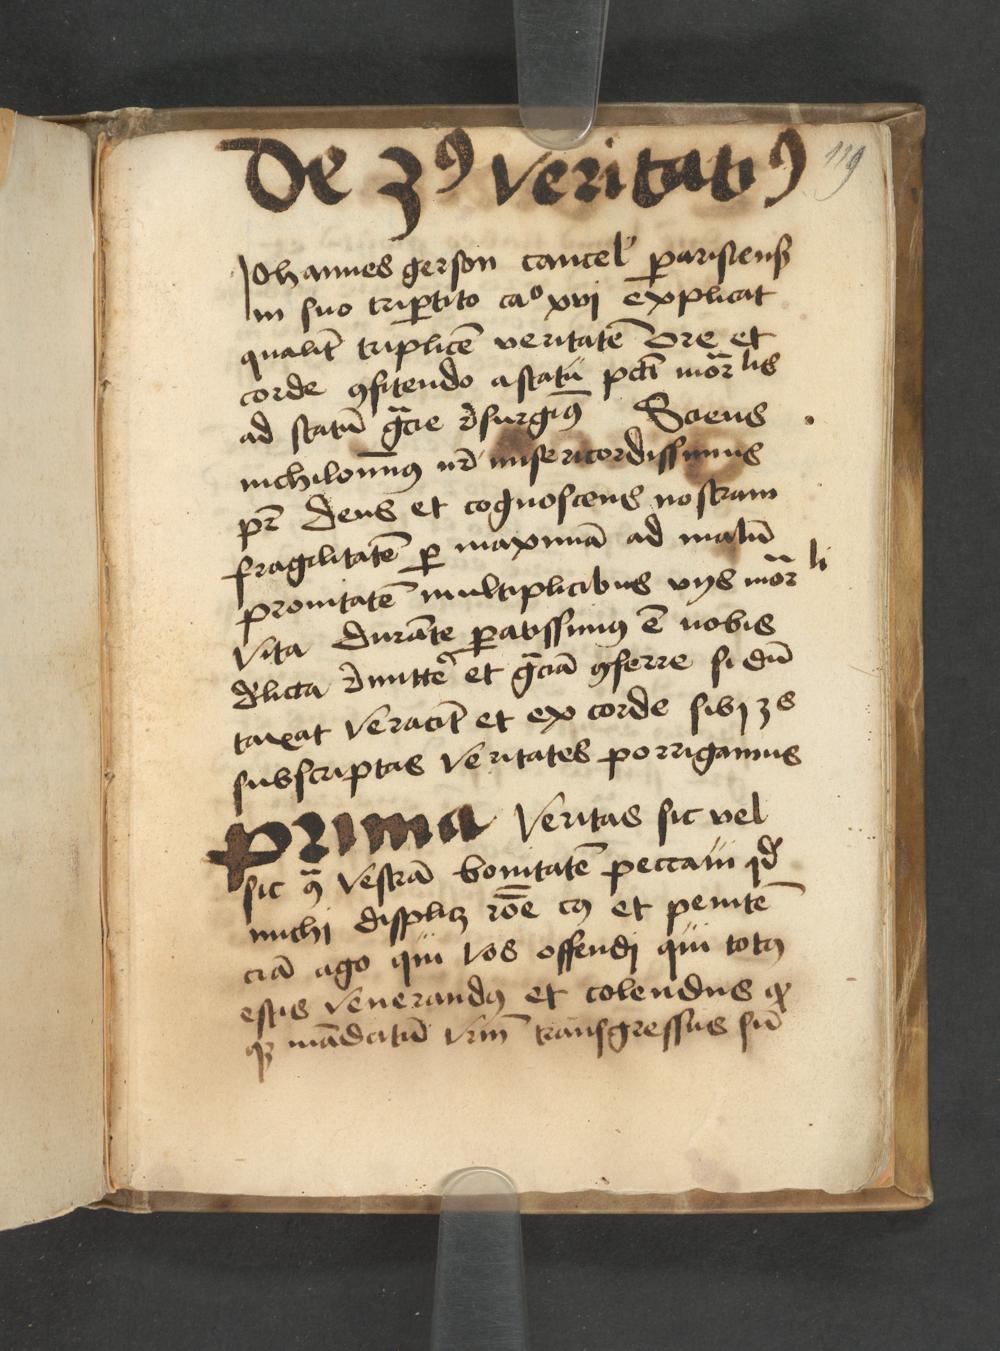 De 3ꝰ veritatiꝰ 119
Johannes gerson cancel' parisiensis
in suo tripertito caº xvj explicat
qualit' triplicē veritatē ore et
corde ꝯfitendo a statu pcti mor̄lis
ad statū gr̄cie resurgimꝰ Sciens
nichilominꝰ nr̄ misericordissimus
pr̄ deus et cognoscens nostram
fragilitatē ꝑ maximā ad malū
pronitatē multiplicibus vijs mor̄li
vita durāte ꝑatissimꝰ ē nobis
delicta dimitte' et gr̄ciā ꝯferre si dū
taxat veracit' et ex corde sibj 3s
subscriptas veritates porrigamus
Prima veritas sic vel
sic ꝯ̄ vestrā bonitatē peccaui qd'
michj displicꝫ rōe cꝰ et penitē
ciā ago qui vos offendj qui totꝰ
estis venerandꝰ et colendus ꝙ
qꝫ mādatū vrm̄ transgressus sū